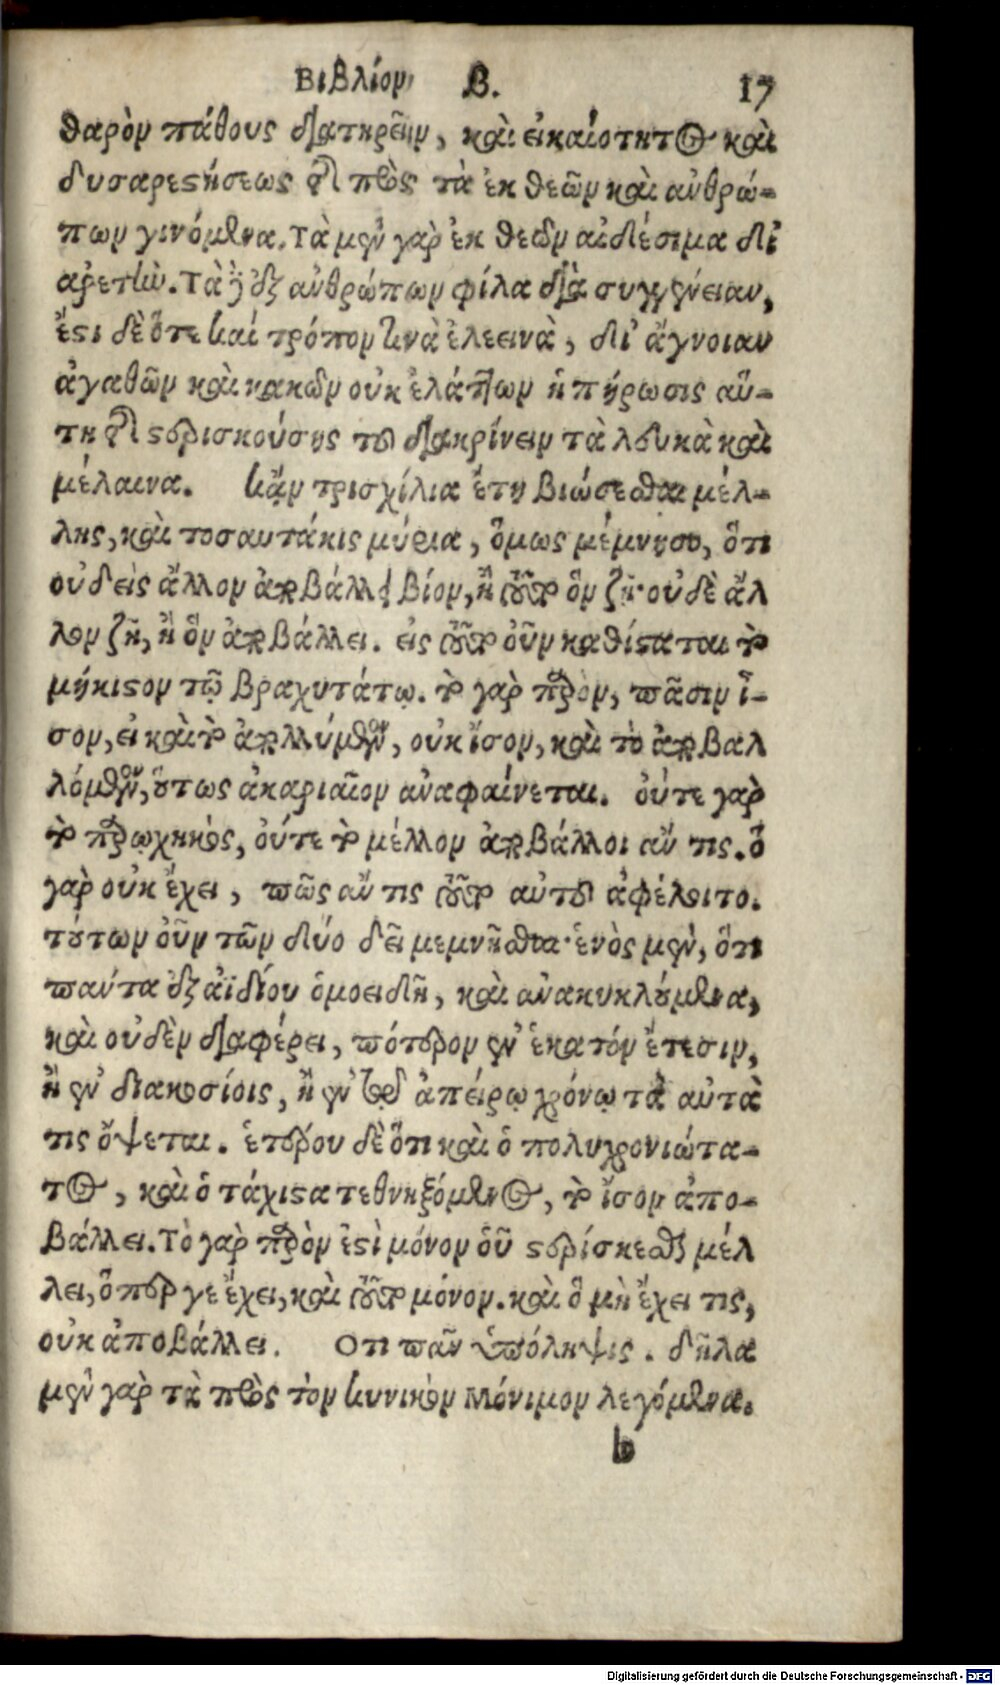 Βιβλίον Β. 17
θαρὸν πάθους διατηρεῖν, καὶ εἰκαιότητος καὶ
δυσαρεστήσεως τῆς πρὸς τὰ ἐκ θεῶν καὶ ἀνθρώ-
πων γινόμενα. Τὰ μὲν γὰρ ἐκ θεῶν αἰδέσιμα δι'
ἀρετὴν. Τὰ δὲ ἐξ ἀνθρώπων φίλα διὰ συγγένειαν,
ἔστι δὲ ὅτε καὶ τρόπον τινὰ ἐλεεινὰ, δι' ἄγνοιαν
ἀγαθῶν καὶ κακῶν οὐκ ἐλάττων ἡ πήρωσις αὕ-
τη τῆς στερισκούσης τοῦ διακρίνειν τὰ λευκὰ καὶ
μέλαινα. Κἂν τρισχίλια ἔτη βιώσεσθαι μέλ-
λης, καὶ τοσαυτάκις μύρια, ὅμως μέμνησο, ὅτι
οὐδεὶς ἄλλον ἀποβάλλει βίον, ἢ τοῦτον ὃν ζῇ· οὐδὲ ἄλ
λον ζῇ, ἢ ὃν ἀποβάλλει. εἰς ταὐτὸ οὖν καθίσταται τὸ
μήκιστον τῷ βραχυτάτῳ. τὸ γὰρ παρὸν, πᾶσιν ἴ-
σον, εἰ καὶ τὸ ἀπολλύμενον, οὐκ ἴσον, καὶ τὸ ἀποβαλ
λόμενον, οὕτως ἀκαριαῖον ἀναφαίνεται. οὔτε γὰρ
τὸ παρῳχηκὸς, οὔτε τὸ μέλλον ἀποβάλλοι ἄν τις. ὃ
γὰρ οὐκ ἔχει, πῶς ἄν τις τοῦτο αὐτοῦ ἀφέλοιτο.
τούτων οὖν τῶν δύο δεῖ μεμνῆσθαι· ἑνὸς μὲν, ὅτι
πάντα ἐξ ἀϊδίου ὁμοειδῆ, καὶ ἀνακυκλούμενα,
καὶ οὐδὲν διαφέρει, πότερον ἐν ἑκατὸν ἔτεσιν,
ἢ ἐν διακοσίοις, ἢ ἐν τῷ ἀπείρῳ χρόνῳ τὰ αὐτὰ
τις ὄψεται. ἑτέρου δὲ ὅτι καὶ ὁ πολυχρονιώτα-
τος, καὶ ὁ τάχιστα τεθνηξόμενος, τὸ ἴσον ἀπο-
βάλλει. Τὸ γὰρ παρὸν ἐστὶ μόνον οὗ στερίσκεσθαι μέλ
λει, ὅπερ γε ἔχει, καὶ τοῦτο μόνον. καὶ ὃ μὴ ἔχει τις,
οὐκ ἀποβάλλει. Οτι πᾶν ὑπόληψις. δῆλα
μὲν γὰρ τὰ πρὸς τὸν κυνικὸν Μόνιμον λεγόμενα.
b
Digitalisierung gefördert durch die Deutsche Forschungsgemeinschaft - DFG